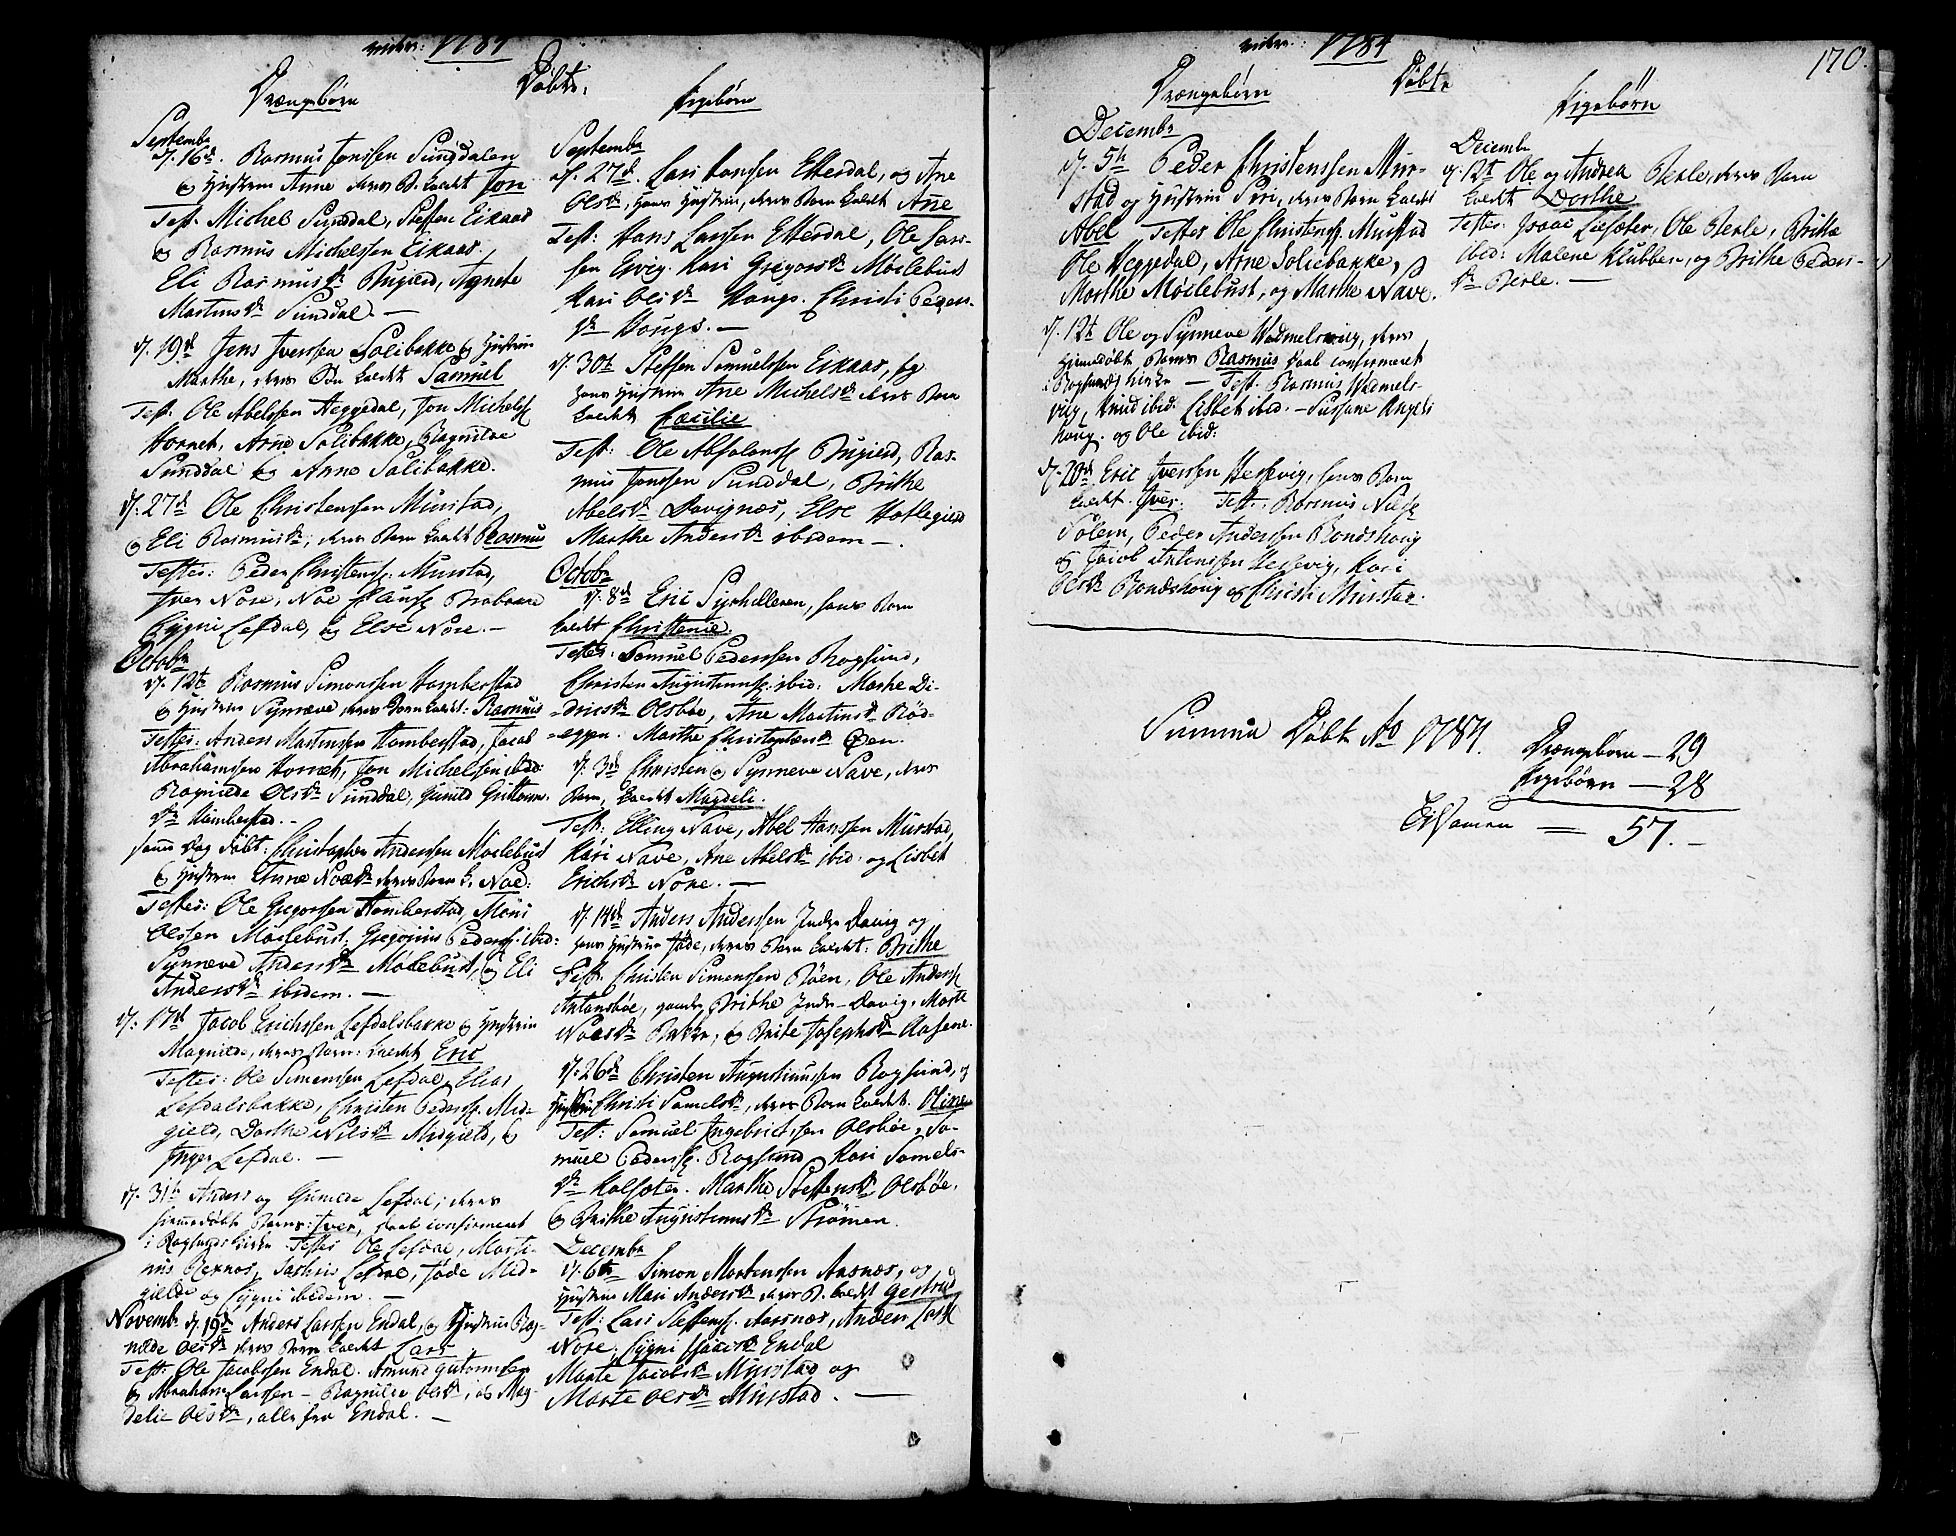 1784
Drængebørn
Døbte.
Pigebørn
Septembr
d. 16de. Rasmus Jonssen Sunddalen
og Hustrue Anne deres B. kaldt Jon
Test. Michel Sunddal, Steffen Eikaas
og Rasmus Michelssen Eikaas,
Eli Rasmusdr Bugierd, Agnete
Martinsdr Sunddal. —
d. 19de Jens Iverssen Solibakke og Hustrue
Marthe, deres Bn kaldt Samuel
Test. Ole Abelssen Heggedal, Jon Michelss
Hornet, Arne Solibakke, Ragnilde
Sunddal og Anne Solibakke.
d. 27de Ole Christenssen Murstad,
og Eli Rasmusdr, deres Barn kaldt Rasmus
Testes: Peder Christenss. Murstad,
Iver Nore, Noe Hanss
Sygni Lefdal, og Else Nore. —
Octobr
d. 12te Rasmus Simonssen Hamberstad
og Hustrue Synneve deres Barn kaldt: Rasmus
Testes: Anders Martenssen Hamberstad, Jacob
Abrahamssen Hornet, Jon Michelsen ibid:
Ragnilde Olsdr Sunddal, Gunild Guttorms-
dr Hamberstad. —
samme Dag døbt: Christopher Anderssen Moldebust
og Hustrue Anne Noedr deres Barn k. Noe:
Testes: Ole Gregorssen Hamberstad, Moni
Olssen Moldebust, Gregorius Pederss. ibid:
Synneve Andersdr Moldebust, og Eli
Andersdr ibidem. —
d: 17de Jacob Erichssen Lefdalsbakke og Hustrue
Magnilde, deres Barn: kaldt Eric
Testes: Ole Simenssen Lefdal, Elias
Lefdalsbakke, Christen Pederss. Mid-
gield, Dorthe Nilsdr Midgield, og
Inger Lefdal. —
d. 31te Anders og Gunilde Lefdal, deres
hiemedøbt Barn: Iver, daab confirmeret
i Rogsunds Kirke Testes Ole Lefdal, Marti-
nus Lefdal, Jøde Mid-
gield og Sygni ibidem. —
Novembr d. 19de Anders Larssen Endal, og Hustrue Rag-
nilde Olsdr deres Barn kaldt Lars
Test. Ole Jacobssen Endal. Amund Guttormssen
og Abraham Larssen — Ragnilde Olsdr, og Mag-
delie Olsdr, alle fra Endal. —
Septembr
d. 27de. Lars Hanssen Ettesdal, og Ane
Olsdr, hans Hustrue, deres Barn kaldt Ane
Test: Hans Larssen Ettesdal, Ole Lars-
sen Ervig. Kari Gregorsdr Moldebust
Kari Olsdr Hougs. Christi Peders-
dr Hougs. —
d. 30te Steffen Samuelssen Eikaas, og
hans Hustrue Ane Michelsdr deres Barn
kaldt Cecilie
Test: Ole Absalonss Bugierd, Ras-
mus Jonssen Sunddal, Brithe
Abelsdr Davignes, Else Hoflegierd
Marthe Andersdr ibidem —.
Octobr
d. 8de Eric Syrhelleren, hans Barn
kaldt Christense.
Testes. Samuel Pederssen Rogsund,
Christen Augustinuss. ibid: Marthe Di-
dricsdr Olsbøe, Ane Martinsdr Rød-
eggen. Marthe Christophersdr Øen.
d. 3de Christen og Synneve Nave, deres
Barn, kaldt Magdeli.
Test: Elling Nave, Abel Hanssen Murstad,
Kari Nave, Ane Abelsdr ibid: og Lisbet
Erichsdr Nore. —
d. 14de Anders Anderssen Indre Davig og
hans Hustrue Jøde, deres Barn kaldt: Brithe
Test. Christen Simenssen Røen, Ole Anderss
Antonsbøe, Brithe Indre-Davig, Marte
Noesdr Bakke, og Brite Josephsdr Aasene.
d. 26de Christen Augustinussen Rogsund, og
Hustrue Christi Samelsdr, deres Barn kaldt: Oline
Test: Samuel Ingebrictssen Olsbøe, Sa-
muel Pederss. Rogsund, Kari Samels-
dr Kalsæter. Marthe Steffensdr Olsbøe,
og Brithe Augustinusdr Strømen.
Decembr
d. 6te Simon Mortenssen Aasnæs, og
Hustrue Mari Andersdr deres B. kaldt Gertrud
Test: Lars Steffenss. Aasnæs, Anders Larss
Nore, Sygni Endal
Marte Jacobsdr Murstad og
Marte Olsdr Murstad. —
1784
170.
Drængebørn
Døbte
Pigebørn
Decembr
d. 5te Peder Christenssen Mur-
stad og Hustrue Siri, deres Barn kaldt
Abel Testes Ole Christenss. Murstad
Ole Heggedal, Arne Solibakke,
Marthe Moldebust, og Marthe Nave.
d. 12te Ole og Synneve Wedmelsvig, deres
hiemedøbt Barn Rasmus daab confirmeret
i Rogsunds Kirke — Test. Rasmus Wedmels-
vig, Knud ibid: Lisbet ibid. — Susane Angels
houg. og Ole ibid:
d. 20de Eric Iverssen Hessevig, hans Barn
kaldt. Iver. Test. Rasmus Nilss
Solem, Peder Anderssen Rondehoug
og Jacob Antonssen Hessevig, Kari
Olsdr Rondehoug og Christi Murstad.
Decemb
d. 12te Ole og Andrea Berle, deres Barn
kaldt Dorthe
Testes: Isaac Liesæter, Ole Berle, Brithe
ibid: Malene Klubben, og Brithe Peders-
dr Berle. —
Summa Døbt Ao 1784.
Drængebørn — 29
Pigebørn — 28
Tilsamen = 57. —